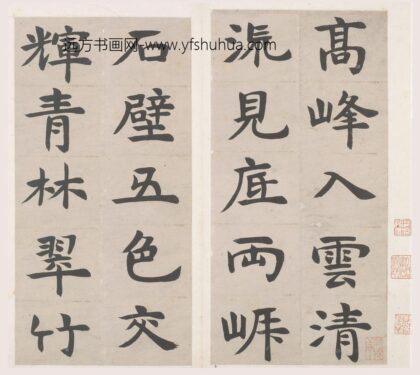 远方书画网-www.yfshuhua.com
髙峰入雲清
流見底兩岸
石壁五色交
輝青林翠竹